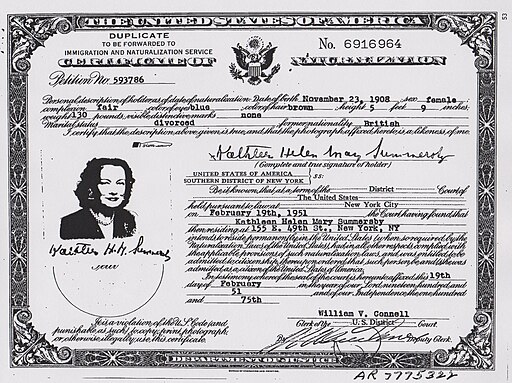 THE UNITED STATES OF AMERICA
DUPLICATE
TO BE FORWARDED TO
IMMIGRATION AND NATURALIZATION SERVICE
No. 6916964
CERTIFICATE OF NATURALIZATION
Petition No. 593786
Personal description of holder as of date of naturalization: Date of birth November 23, 1908 sex female
complexion fair color of eyes blue color of hair brown height 5 feet 9 inches
weight 130 pounds, visible distinctive marks none
Marital status divorced former nationality British
I certify that the description above given is true, and that the photograph affixed hereto is a likeness of me.
Kathleen Helen May Summersby
(Complete and true signature of holder)
UNITED STATES OF AMERICA
SOUTHERN DISTRICT OF NEW YORK
SS:
Be it known, that at a term of the District Court of
The United States
held pursuant to law at New York City
on February 19th, 1951 the Court having found that
Kathleen Helen Mary Summersby
then residing at 155 E. 49th St., New York, NY
intends to reside permanently in the United States (when so required by the
Naturalization Laws of the United States), had in all other respects complied with
the applicable provisions of such naturalization laws, and was entitled to be
admitted to citizenship, thereupon ordered that such person be and (s)he was
admitted as a citizen of the United States of America.
In testimony whereof the seal of the court is hereunto affixed this 19th
day of February in the year of our Lord nineteen hundred and
51 and of our Independence the one hundred
and 75th
Kathleen H. M. Summersby
It is a violation of the U.S. Code (and
punishable as such) to copy, print, photograph,
or otherwise illegally use this certificate.
William V. Connell
Clerk of the U. S. District Court.
By Deputy Clerk.
DEPARTMENT OF JUSTICE
AR 7775322